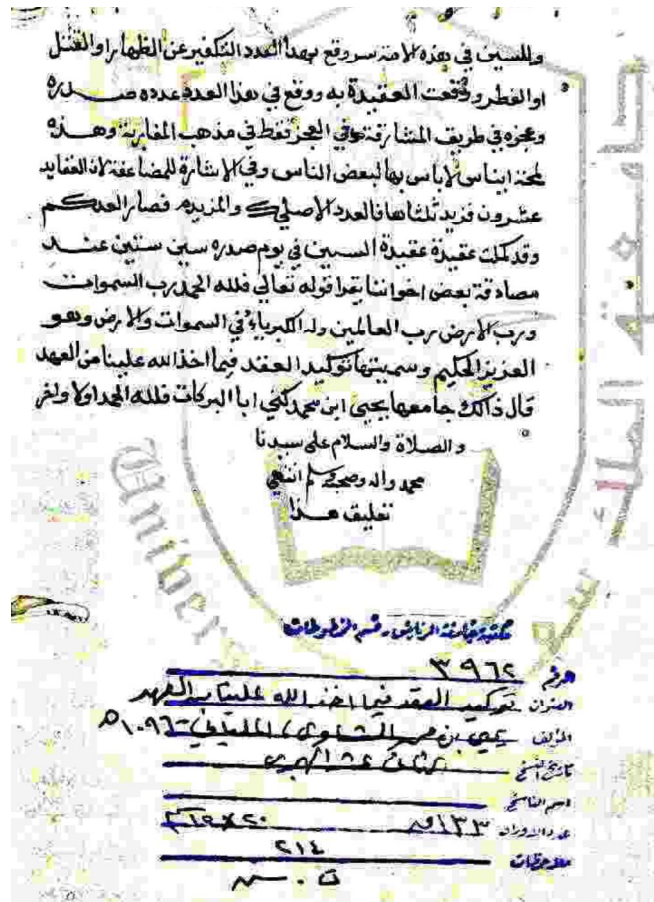 وللستين في هذه الامة سر وقع بهذا العدد التكفير عن الظهار او القتل
او الفطر ووقعت العقيدة به ووقع في هذا العدد عدده صدره
وعجزه في طريق المشارقة وفي العجز فقط في مذهب المغاربة وهذه
لمحة ايناس لاباس بها لبعض الناس وفي الاشارة للمضاعفة لان العقايد
عشرون فزيد ثلثاها فالعدد الاصلي والمزيد فصار العدد كم
وقد كملت عقيدة عقيدة الستين في يوم صدره ستين سنتين عند
مصادفة بعض اخواننا يقرا قوله تعالى فلله الحمد رب السموات
ورب الارض رب العالمين وله الكبرياء في السموات والارض وهو
العزيز الحكيم وسميتها توكيد العقد فيما اخذ الله علينا من العهد
قال ذالك جامعها يحيى ابن محمد كني ابا البركات فلله الحمد اولا واخر
والصلاة والسلام على سيدنا
محمد واله وصحبه وسلم انتهى
تعليق هذا
مكتبة جامعة الرياض - قسم المخطوطات
الرقم ٣٩٦٢
العنوان توكيد العقد فيما اخذ الله علينا من العهد
المؤلف يحيى بن محمد الشاوي، الملياني - ١٠٩٦ه
تاريخ النسخ الثاني عشر الهجري
اسم الناسخ
عدد الاوراق ١٣٣
ملاحظات ٢١٤